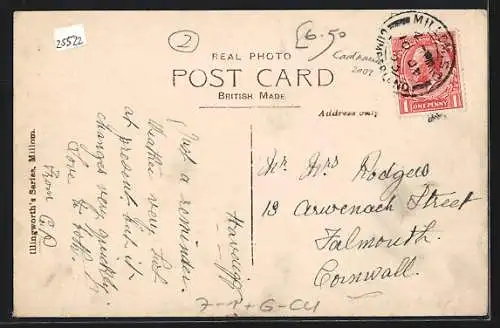 25522
2
£6.50
REAL PHOTO
POST CARD
BRITISH MADE
Address only
2007
MILLOM
CUMBERLAND
ONE PENNY
1 1
Illingworth's Series, Millom.
Haverigg
Just a reminder.
Weather very hot
at present, but it
changes very quickly.
Love to both
From
Mr Mrs Rodgers
19 Arwenach Street
Falmouth.
Cornwall.